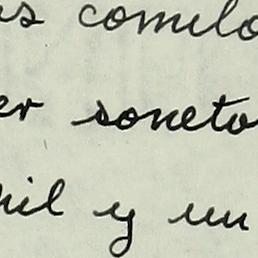 as comilo
er soneto
mil y un